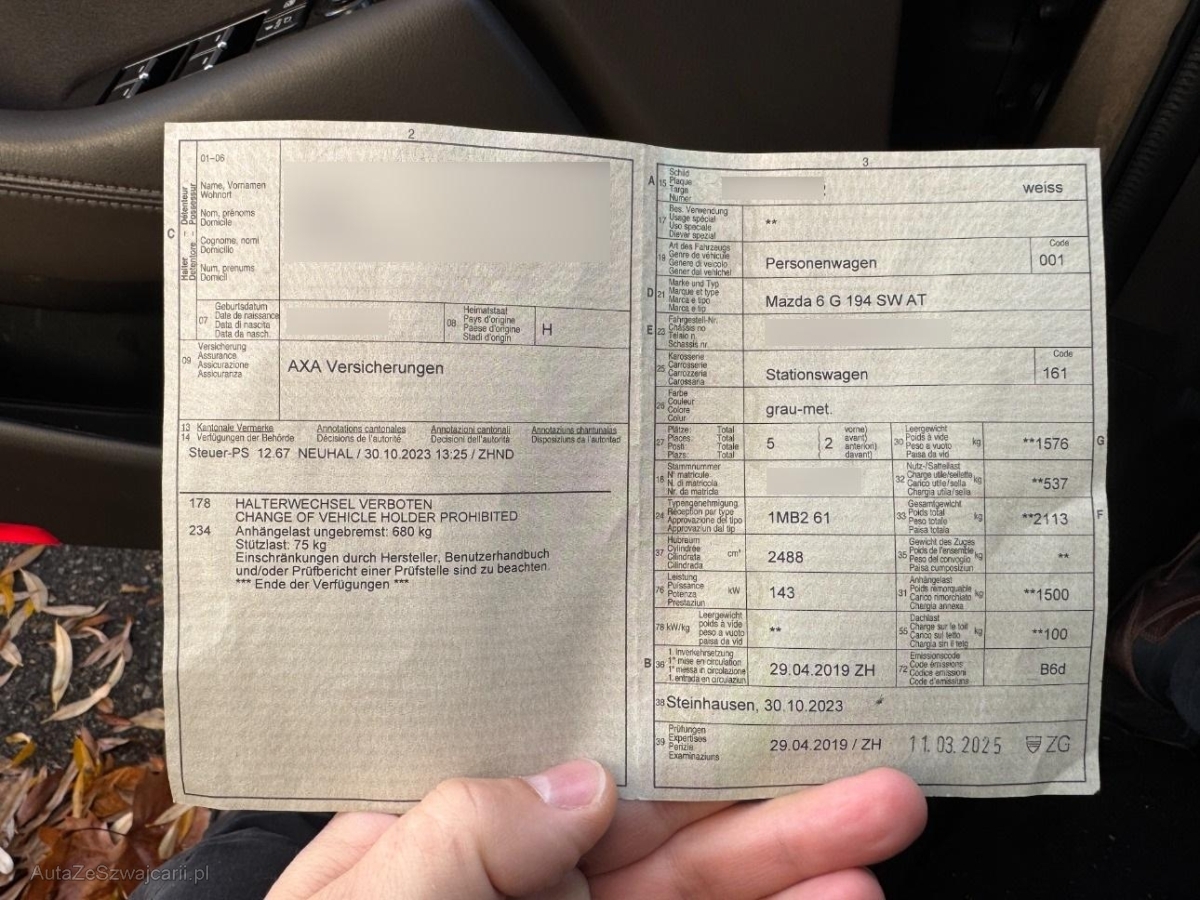 2
01-06
Name, Vornamen
Wohnort
Nom, prénoms
Domicile
Cognome, nomi
Domicilio
Num, prenums
Domicil
C
Halter Détenteur
Detentore Possessur
07
Geburtsdatum
Date de naissance
Data di nascita
Data da nasch.
08
Heimatstaat
Pays d'origine
Paese d'origine
Stadi d'origin
H
09
Versicherung
Assurance
Assicurazione
Assicuranza
AXA Versicherungen
13 Kantonale Vermerke Annotations cantonales Annotazioni cantonali Annotaziuns chantunalas
14 Verfügungen der Behörde Décisions de l'autorité Decisioni dell'autorità Disposiziuns da l'autoritad
Steuer-PS 12.67 NEUHAL / 30.10.2023 13:25 / ZHND
178 HALTERWECHSEL VERBOTEN
CHANGE OF VEHICLE HOLDER PROHIBITED
234 Anhängelast ungebremst: 680 kg
Stützlast: 75 kg
Einschränkungen durch Hersteller, Benutzerhandbuch
und/oder Prüfbericht einer Prüfstelle sind zu beachten.
*** Ende der Verfügungen ***
3
A 15
Schild
Plaque
Targa
Numer
weiss
17
Bes. Verwendung
Usage spécial
Uso speciale
Diever spezial
**
19
Art des Fahrzeugs
Genre de véhicule
Genere di veicolo
Gener dal vehichel
Personenwagen
Code
001
D 21
Marke und Typ
Marque et type
Marca e tipo
Marca e tip
Mazda 6 G 194 SW AT
E 23
Fahrgestell-Nr.
Châssis no
Telaio n.
Schassis nr.
25
Karosserie
Carrosserie
Carrozzeria
Carossaria
Stationswagen
Code
161
26
Farbe
Couleur
Colore
Colur
grau-met.
27
Plätze: Total
Places: Total
Posti: Totale
Plazs: Total
5
2
vorne)
avant)
anteriori)
davant)
30
Leergewicht
Poids à vide
Peso a vuoto
Paisa da vid
kg
**1576
G
18
Stammnummer
N° matricule
N. di matricola
Nr. da matricla
32
Nutz-/Sattellast
Charge utile/sellette
Carico utile/sella
Chargia utila/sella
kg
**537
24
Typengenehmigung
Réception par type
Approvazione del tipo
Approvaziun dal tip
1MB2 61
33
Gesamtgewicht
Poids total
Peso totale
Paisa totala
kg
**2113
F
37
Hubraum
Cylindrée
Cilindrata
Cilindrada
cm³
2488
35
Gewicht des Zuges
Poids de l'ensemble
Peso del convoglio
Paisa cumposiziun
kg
**
76
Leistung
Puissance
Potenza
Prestaziun
kW
143
31
Anhängelast
Poids remorquable
Carico rimorchiato
Chargia annexa
kg
**1500
78 kW/kg
Leergewicht
poids à vide
peso a vuoto
paisa da vid
**
55
Dachlast
Charge sur le toit
Carico sul tetto
Chargia sin il tetg
kg
**100
B 36
1. Inverkehrsetzung
1re mise en circulation
1a messa in circolazione
1. entrada en circulaziun
29.04.2019 ZH
72
Emissionscode
Code émissions
Codice emissioni
Code d'emissiuns
B6d
38 Steinhausen, 30.10.2023
39
Prüfungen
Expertises
Perizie
Examinaziuns
29.04.2019 / ZH
11.03.2025 ZG
AutaZeSzwajcarii.pl